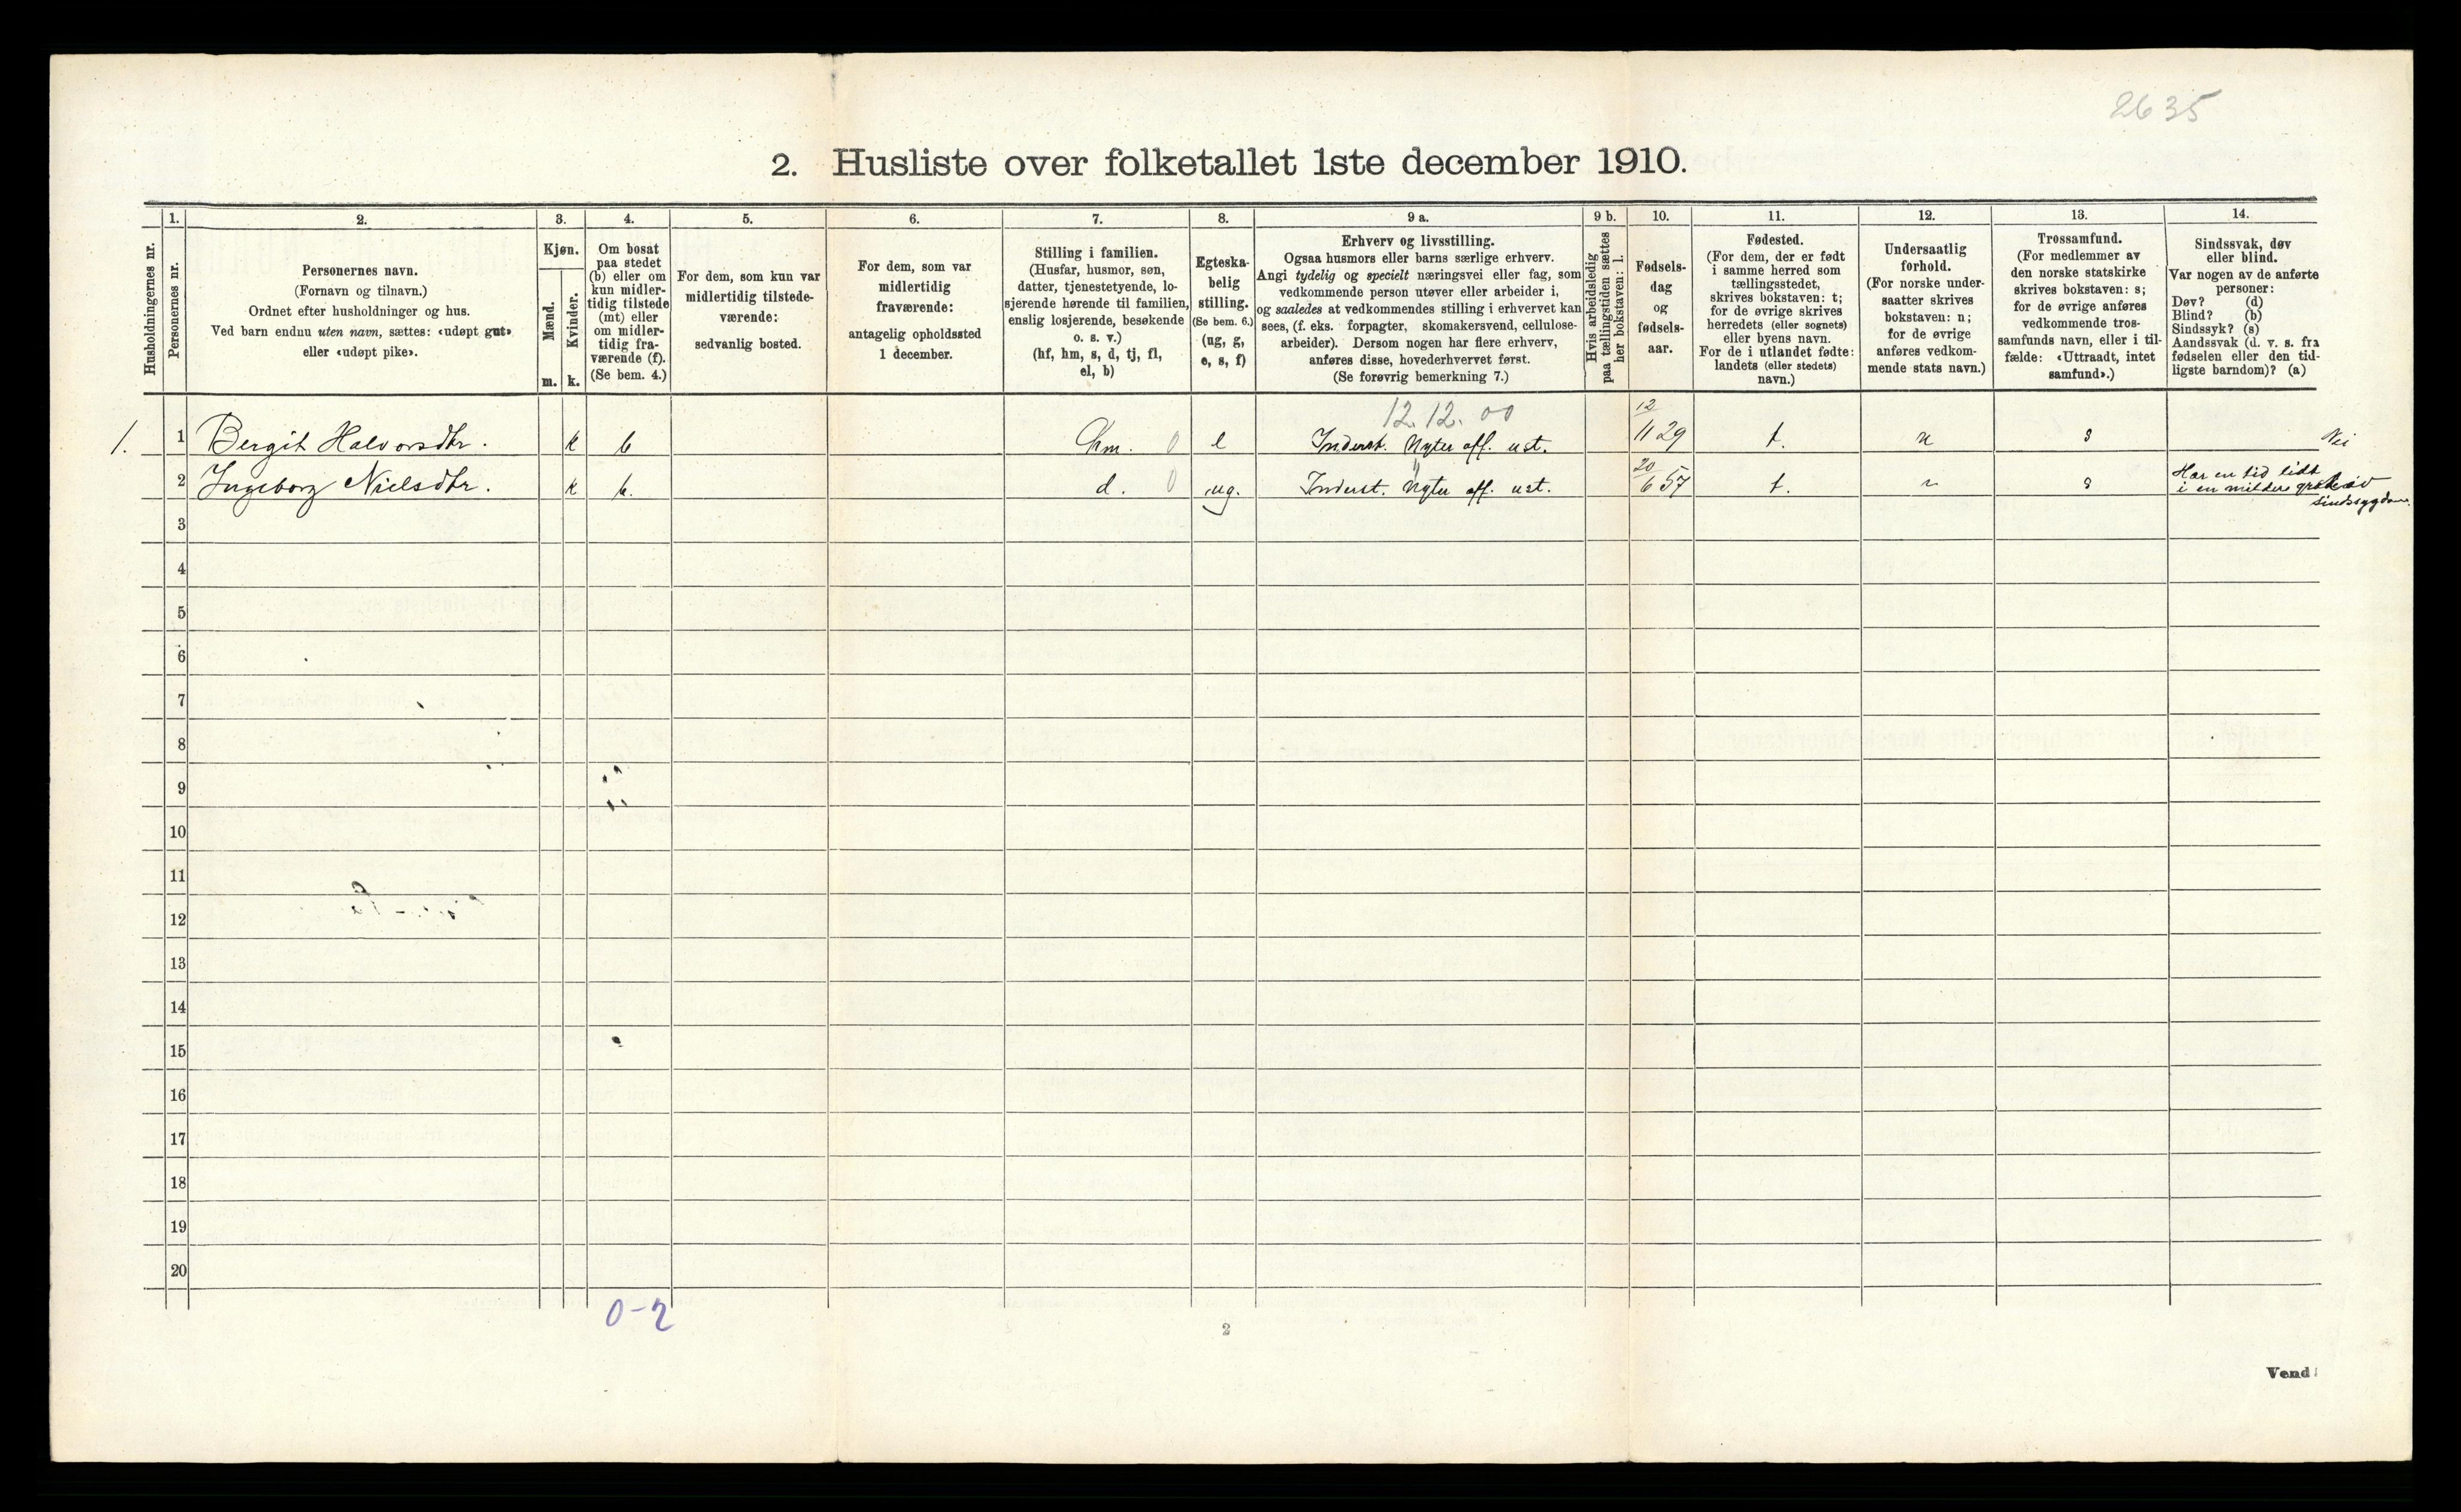 2635
2. Husliste over folketallet 1ste december 1910.
1. 2. 3. 4. 5. 6. 7. 8. 9 a. 9 b. 10. 11. 12. 13. 14.
Husholdningernes nr.
Personernes nr.
Personernes navn.
(Fornavn og tilnavn.)
Ordnet efter husholdninger og hus.
Ved barn endnu uten navn, sættes: «udøpt gut»
eller «udøpt pike».
Kjøn.
Mænd.
Kvinder.
m. k.
Om bosat
paa stedet
(b) eller om
kun midler-
tidig tilstede
(mt) eller
om midler-
tidig fra-
værende (f).
(Se bem. 4.)
For dem, som kun var
midlertidig tilstede-
værende:
sedvanlig bosted.
For dem, som var
midlertidig
fraværende:
antagelig opholdssted
1 december.
Stilling i familien.
(Husfar, husmor, søn,
datter, tjenestetyende, lo-
sjerende hørende til familien,
enslig losjerende, besøkende
o. s. v.)
(hf, hm, s, d, tj, fl,
el, b)
Egteska-
belig
stilling.
(Se bem. 6.)
(ug, g,
e, s, f)
Erhverv og livsstilling.
Ogsaa husmors eller barns særlige erhverv.
Angi tydelig og specielt næringsvei eller fag, som
vedkommende person utøver eller arbeider i,
og saaledes at vedkommendes stilling i erhvervet kan
sees, (f. eks. forpagter, skomakersvend, cellulose-
arbeider). Dersom nogen har flere erhverv,
anføres disse, hovederhvervet først.
(Se forøvrig bemerkning 7.)
Hvis arbeidsledig
paa tællingstiden sættes
her bokstaven: l.
Fødsels-
dag
og
fødsels-
aar.
Fødested.
(For dem, der er født
i samme herred som
tællingsstedet,
skrives bokstaven: t;
for de øvrige skrives
herredets (eller sognets)
eller byens navn.
For de i utlandet fødte:
landets (eller stedets)
navn.)
Undersaatlig
forhold.
(For norske under-
saatter skrives
bokstaven: n;
for de øvrige
anføres vedkom-
mende stats navn.)
Trossamfund.
(For medlemmer av
den norske statskirke
skrives bokstaven: s;
for de øvrige anføres
vedkommende tros-
samfunds navn, eller i til-
fælde: «Uttraadt, intet
samfund».)
Sindssvak, døv
eller blind.
Var nogen av de anførte
personer:
Døv? (d)
Blind? (b)
Sindssyk? (s)
Aandssvak (d. v. s. fra
fødselen eller den tid-
ligste barndom)? (a)
12.12.00
1. 1 Bergit Halvorsdtr. k b hm. 0 e Inderst. Nyter off. ust. 12/11 29 t. n s Nei
2 Ingeborg Nielsdtr. k b. d. 0 ug. Inderst. Nyter off. ust. 20/6 57 t. n s Har en tid lidt
i en mildere grad av
sindssygdom.
3
4
5
6
7
8
9
10
11
12
13
14
15
16
17
18
19
20
0-2
2
Vend!